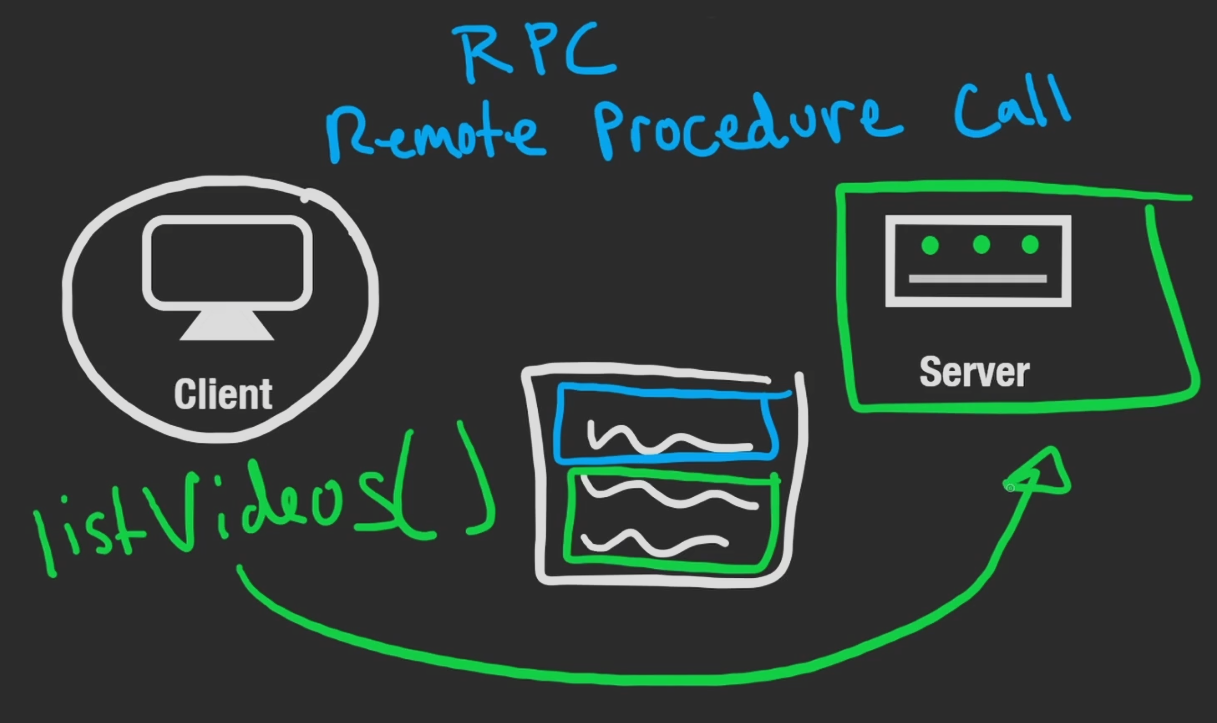 RPC
Remote Procedure Call
Client
Server
listVideos()